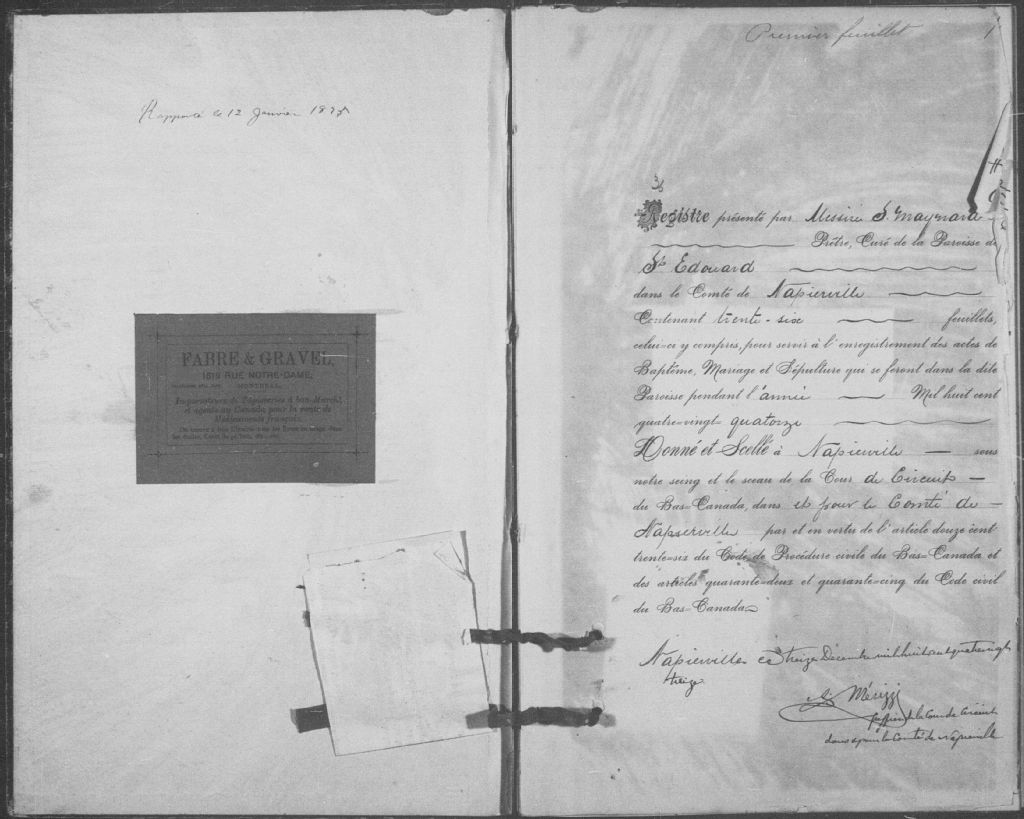 Rapporté le 12 Janvier 1895
FABRE & GRAVEL,
1619 RUE NOTRE-DAME,
MONTREAL.
Importateurs de Tapisseries à bon Marché,
et agents au Canada pour la vente de
Médicaments français.
Premier feuillet 1
Registre présenté par Messire S. Maynard
Prêtre, Curé de la Paroisse de
St Edouard
dans le Comté de Napierville
Contenant trente-six feuillets,
celui-ci y compris, pour servir à l'enregistrement des actes de
Baptême, Mariage et Sépulture qui se feront dans la dite
Paroisse pendant l'année Mil huit cent
quatre-vingt quatorze
Donné et Scellé à Napierville sous
notre seing et le sceau de la Cour de Circuit
du Bas-Canada, dans et pour le Comté de
Napierville par et en vertu de l'article douze cent
trente-six du Code de Procédure civile du Bas-Canada et
des articles quarante-deux et quarante-cinq du Code civil
du Bas-Canada
Napierville ce treize Décembre mil huit cent quatre vingt
treize.
Mérizzi
Greffier de la Cour de Circuit
dans & pour le Comté de Napierville